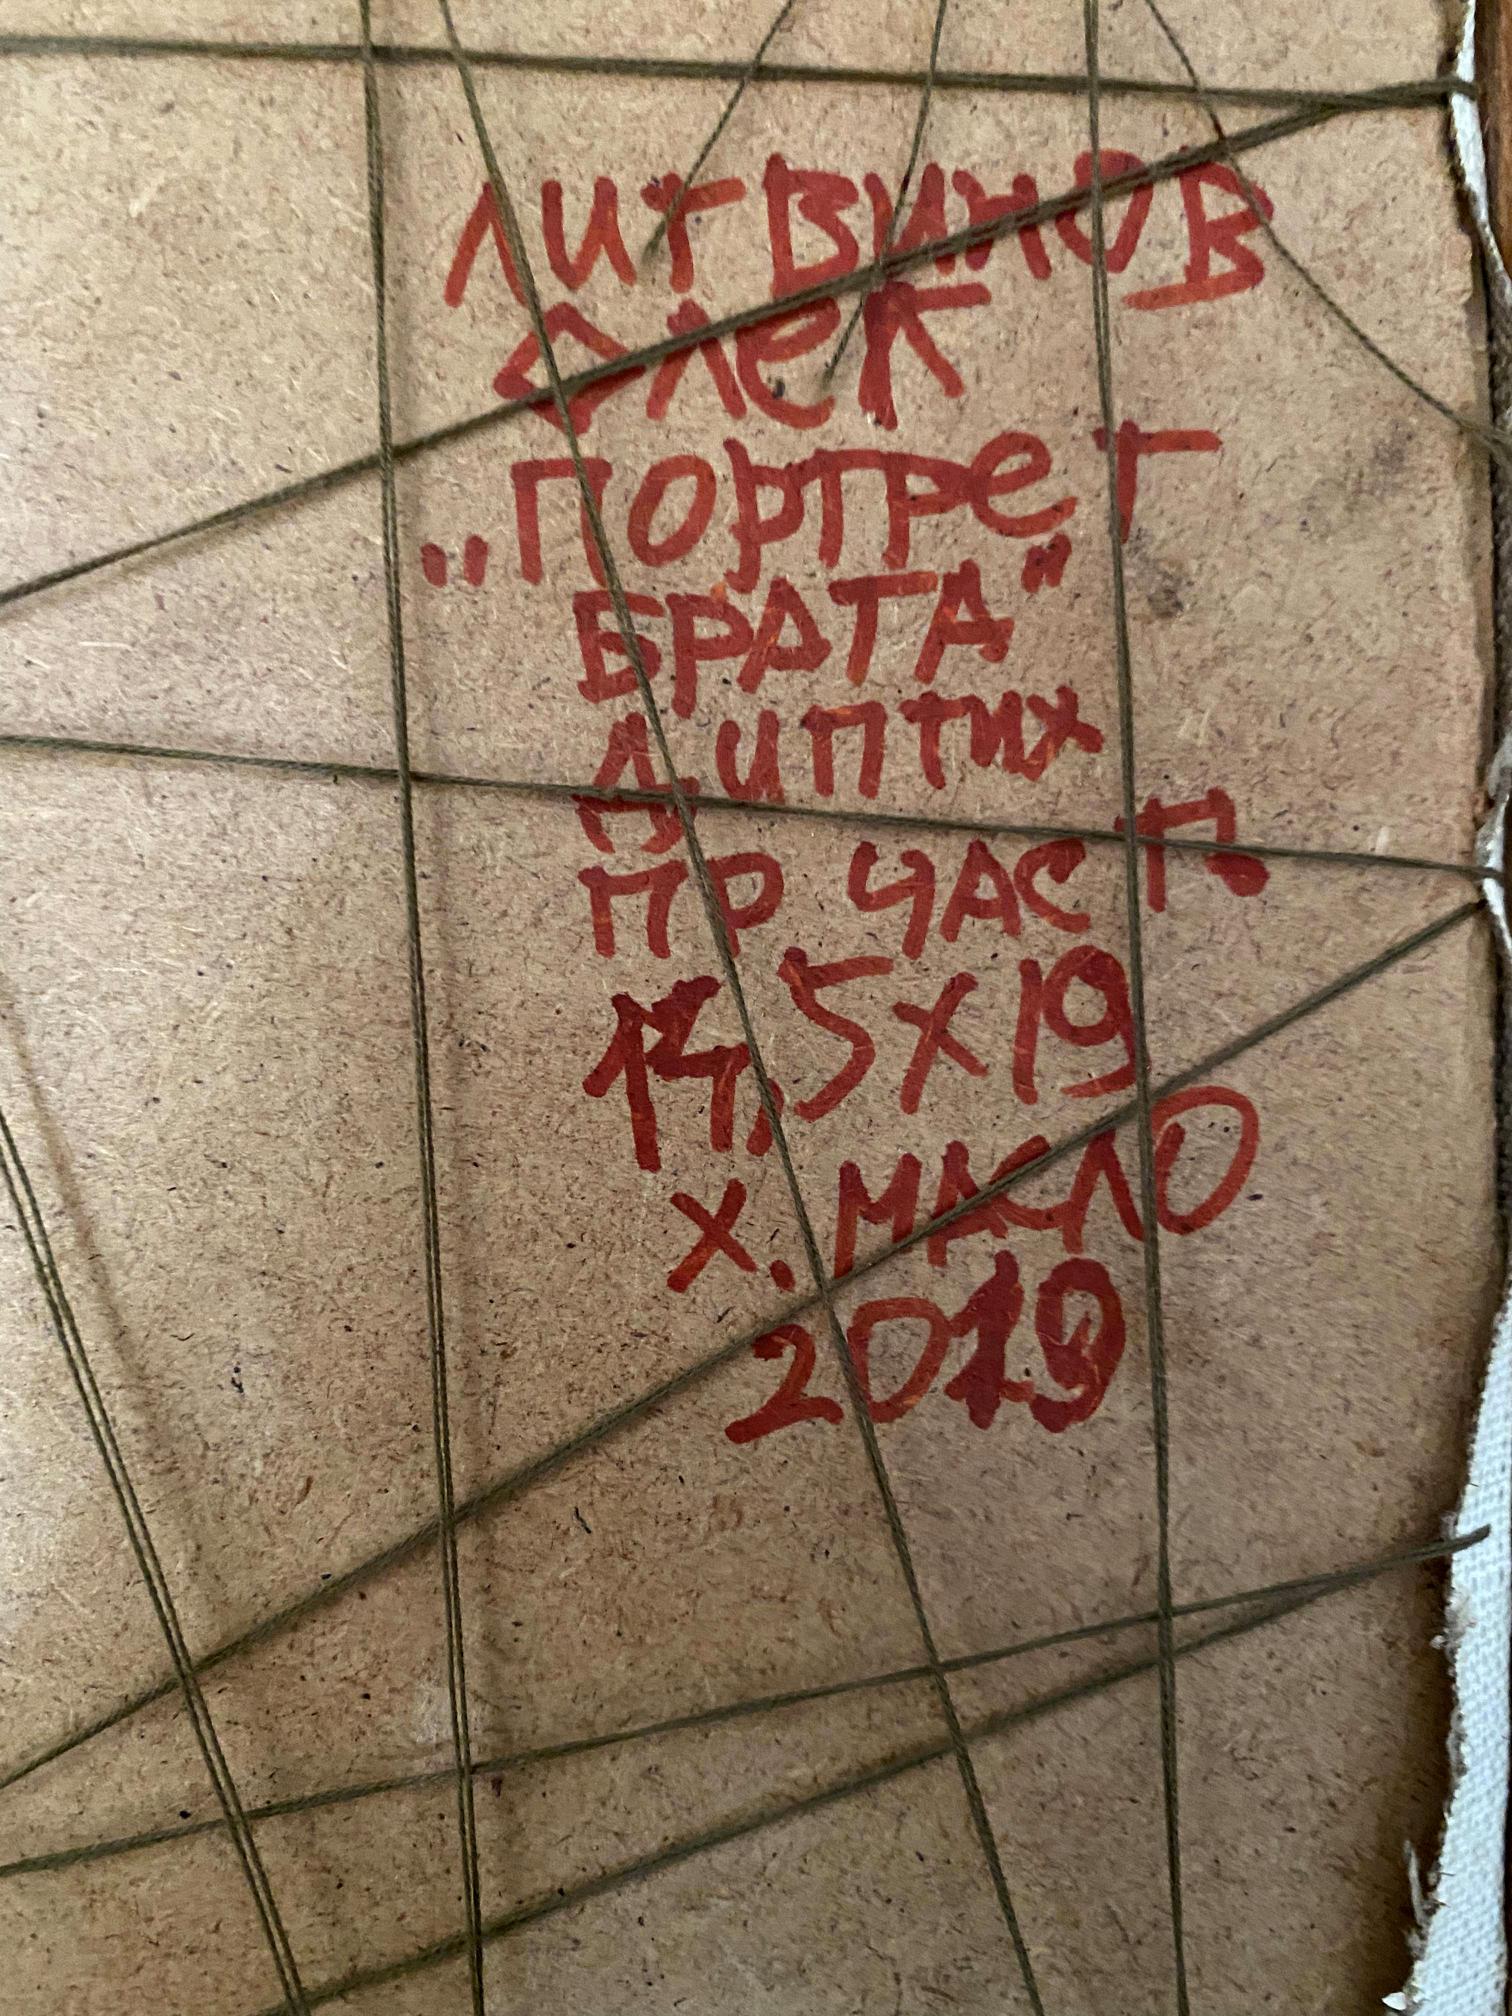 ЛИТВИНОВ
ОЛЕК
„ПОРТРЕТ
БРАТА"
ДИПТИХ
ПР ЧАСТЬ
14,5X19
Х. МАСЛО
2019